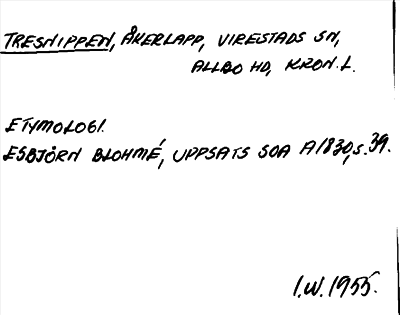 TRESNIPPEN, ÅKERLAPP, VIRESTADS SN,
ALLBO HD, KRON.L.
ETYMOLOGI.
ESBJÖRN BLOHMÉ, UPPSATS SOA A1830, S. 39.
I.W. 1955.